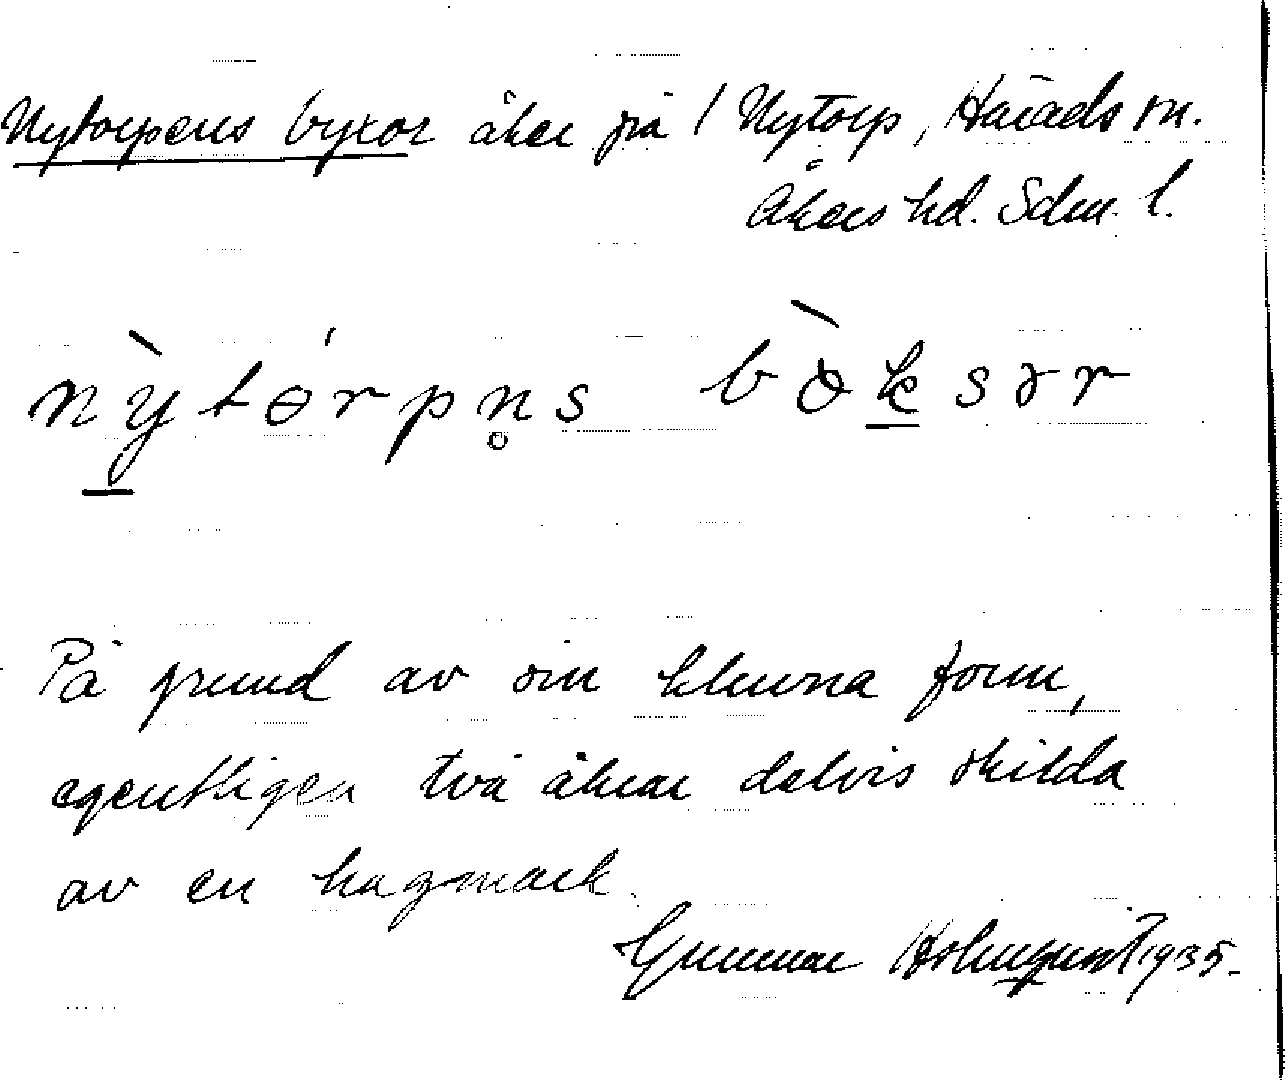 Nytorpens byxor åker på / Nytorp, Härads sn.
Åkers hd. Sdm. l.
nỳtɵ́rpn̥s bɵ̀ksər
På grund av sin kluvna form,
egentligen två åkrar delvis skilda
av en hagmark.
Gunnar Holmquist 1935.